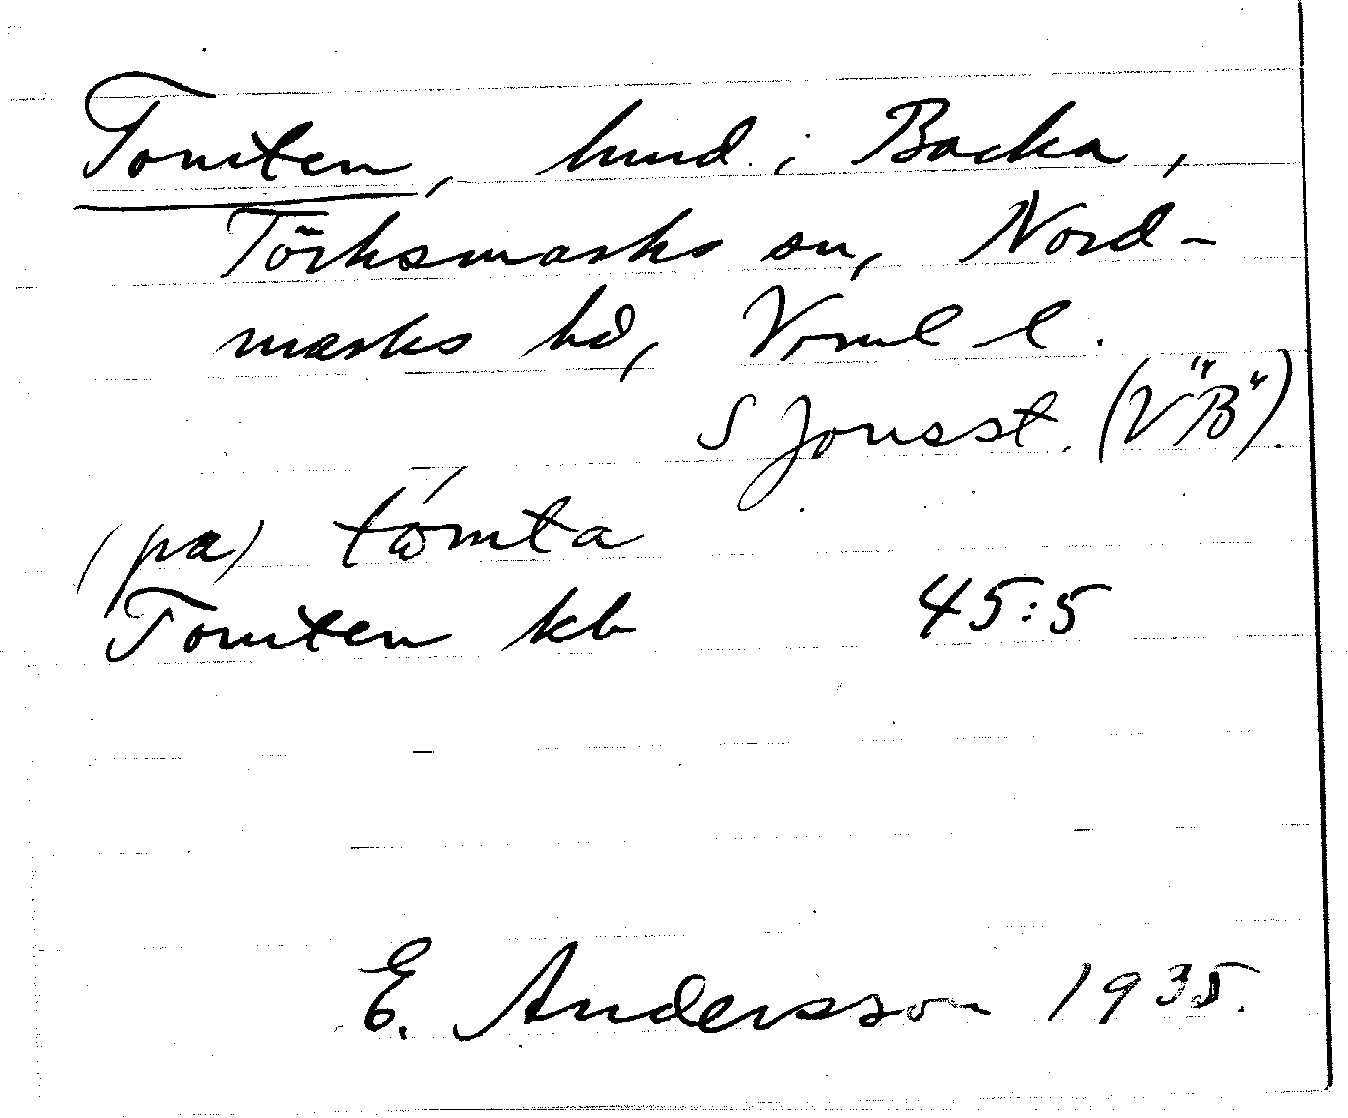 Tomten, hmd. i Backa,
Törksmarks sn, Nord-
marks hd, Vrml l.
S Jonsst. (V"B").
(pa) tòmta
Tomten kb 45:5
E. Andersson 1935.